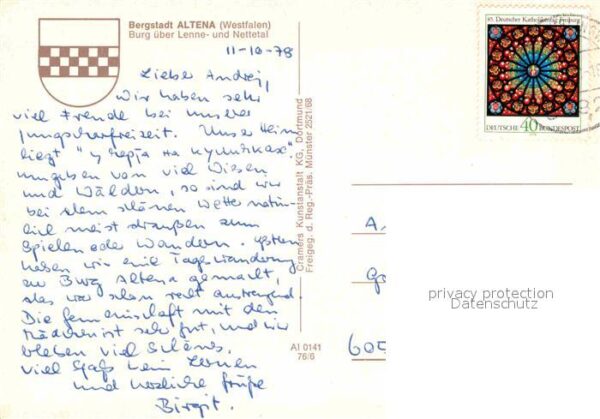 Bergstadt ALTENA (Westfalen)
Burg über Lenne- und Nettetal
11-10-78
Lieber Andrej,
wir haben sehr
viel Freude bei unserer
Jungscharfreizeit. Unser Heim
liegt "у черта на куличках".
umgeben von viel Wiesen
und Wäldern, so sind wir
bei dem schönen Wetter natür-
lich meist draußen zum
Spielen oder Wandern. Gestern
haben wir eine Tageswanderung
zu Burg Altena gemacht,
das war schon recht anstrengend.
Die Gemeinschaft mit den
Mädchen ist sehr gut, und wir
erleben viel Schönes.
Viel Spaß beim Lernen
und herzliche Grüße
Birgit.
Cramers Kunstanstalt KG, Dortmund
Freigeg. d. Reg.-Präs. Münster 2521/68
Al 0141
76/6
85. Deutscher Katholikentag Freiburg
DEUTSCHE 40 BUNDESPOST
A.
605
privacy protection
Datenschutz